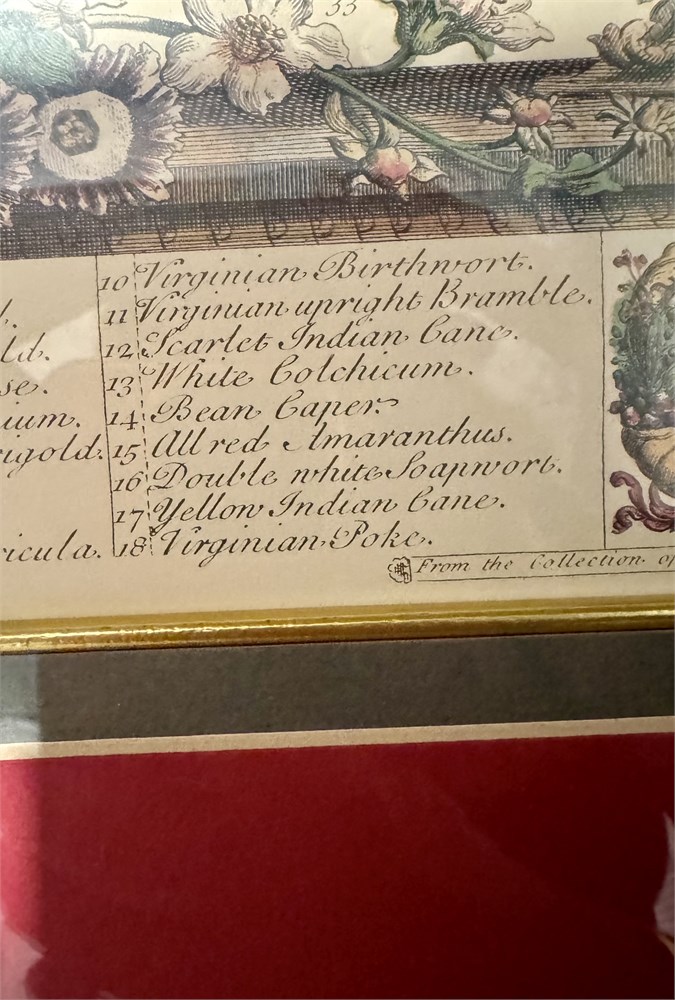 33
10 Virginian Birthwort.
11 Virginian upright Bramble.
12 Scarlet Indian Cane.
13 White Colchicum.
14 Bean Caper.
15 All red Amaranthus.
16 Double white Soapwort.
17 Yellow Indian Cane.
18 Virginian Poke.
ld.
se.
ium.
igold.
icula.
From the Collection of